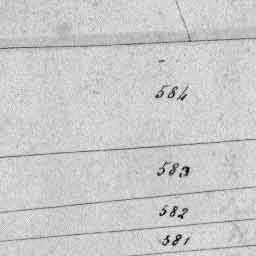 584
583
582
581